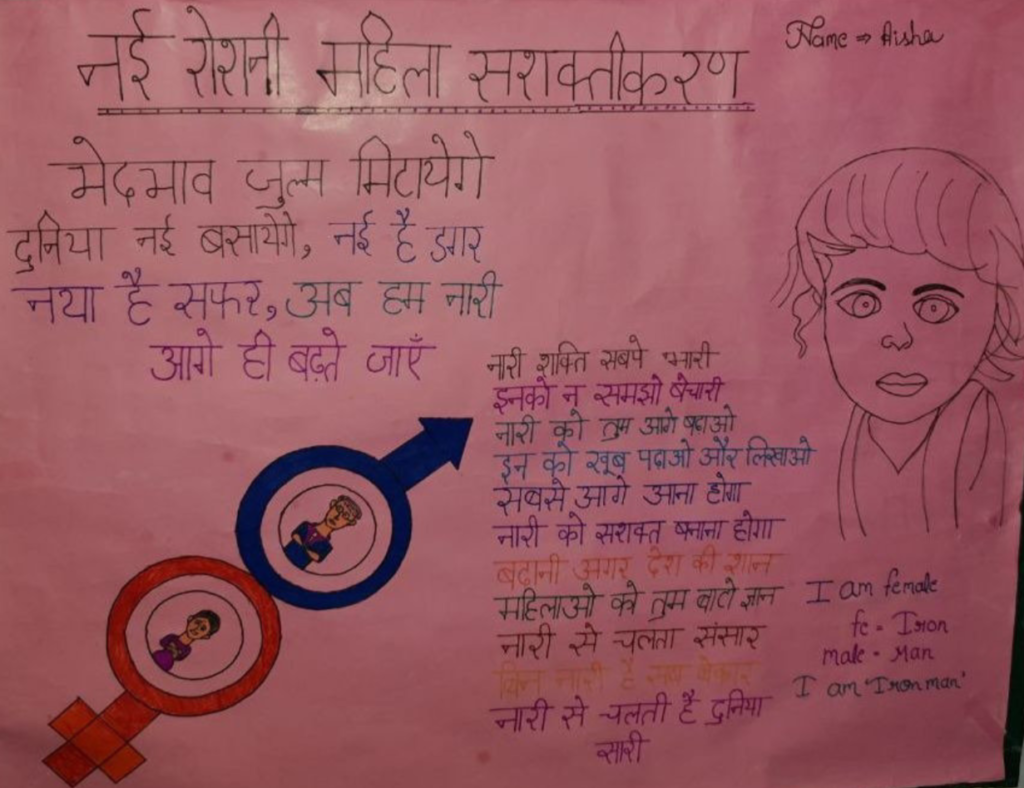 नई रोशनी महिला सशक्तीकरण
Name ⇒ Aisha
भेदभाव जुल्म मिटायेगे
दुनिया नई बसायेगे, नई है डगर
नया है सफर, अब हम नारी
आगे ही बढ़ते जाएँ
नारी शक्ति सबपे भारी
इनको न समझो बेचारी
नारी को तुम आगे बढाओ
इन को खूब पढाओ और लिखाओ
सबसे आगे आना होगा
नारी को सशक्त बनाना होगा
बढानी अगर देश की शान
महिलाओ को तुम बाटो ज्ञान
नारी से चलता संसार
बिन नारी है सब बेकार
नारी से चलती है दुनिया
सारी
I am female
fe = Iron
male = Man
I am 'Iron man'